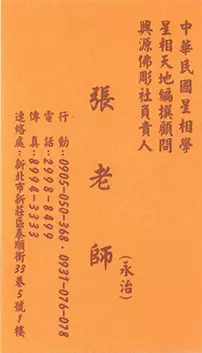 中華民國星相學
星相天地編撰顧問
興源佛彫社負責人
張老師
(永治)
行動:0905-050-368‧0931-076-078
電話:2998-8499
傳真:8994-3333
連絡處:新北市新莊區泰順街33巷5號1樓